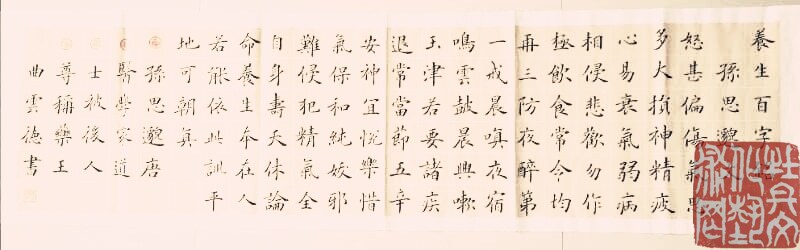 養生百字
孫思邈
怒甚偏傷氣思
多太損神精疲
心易衰氣弱病
相侵悲歡勿作
極飲食常令均
再三防夜醉第
一戒晨嗔夜宿
鳴雲鼓晨興嗽
玉津若要諸疾
退常當節五辛
安神宜悅樂惜
氣保和純妖邪
難侵犯精氣全
自身壽夭休論
命養生本在人
若能依此訓平
地可朝真
孫思邈唐
醫學家道
士被後人
尊稱藥王
曲雲德書